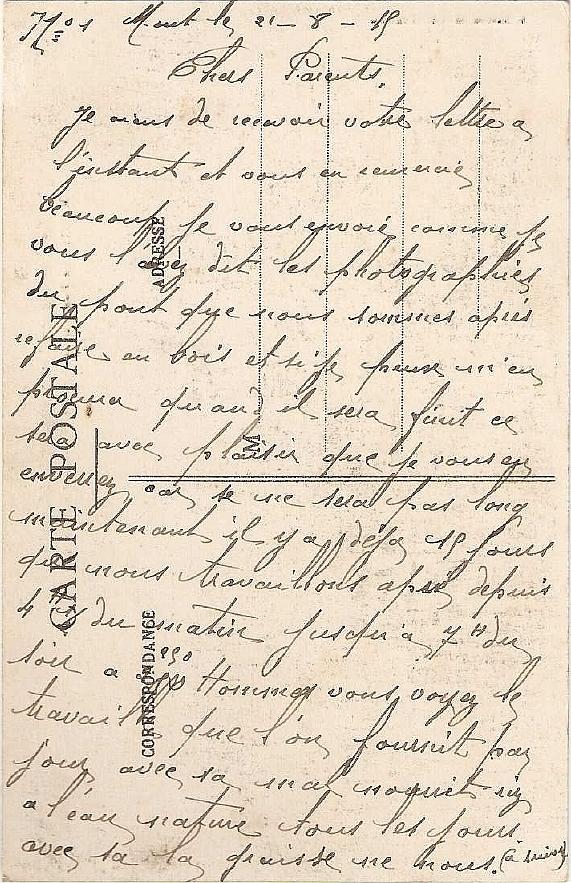 N° 1 Mont le 21-8-15
Chers Parents,
Je viens de recevoir votre lettre a
l'instant et vous en remercie
beaucoup, Je vous envoie comme je
vous l'avez dit les photographies
du pont que nous sommes après
refaire en bois et si je peux m'en
procurer quand il sera finit ce
sera avec plaisir que je vous en
enverrez car se ne sera pas long
maintenant il y a déjà 15 jours
que nous travaillons après depuis
4 H du matin jusqu'a 7 H du
soir a 250 Hommes vous voyez le
travaille que l'on fournit par
jour avec sa mal nourrit
a l'eau nature tous les jours
avec sa la graisse ne nous. (à suivre)
CARTE POSTALE
CORRESPONDANCE
ADRESSE
M